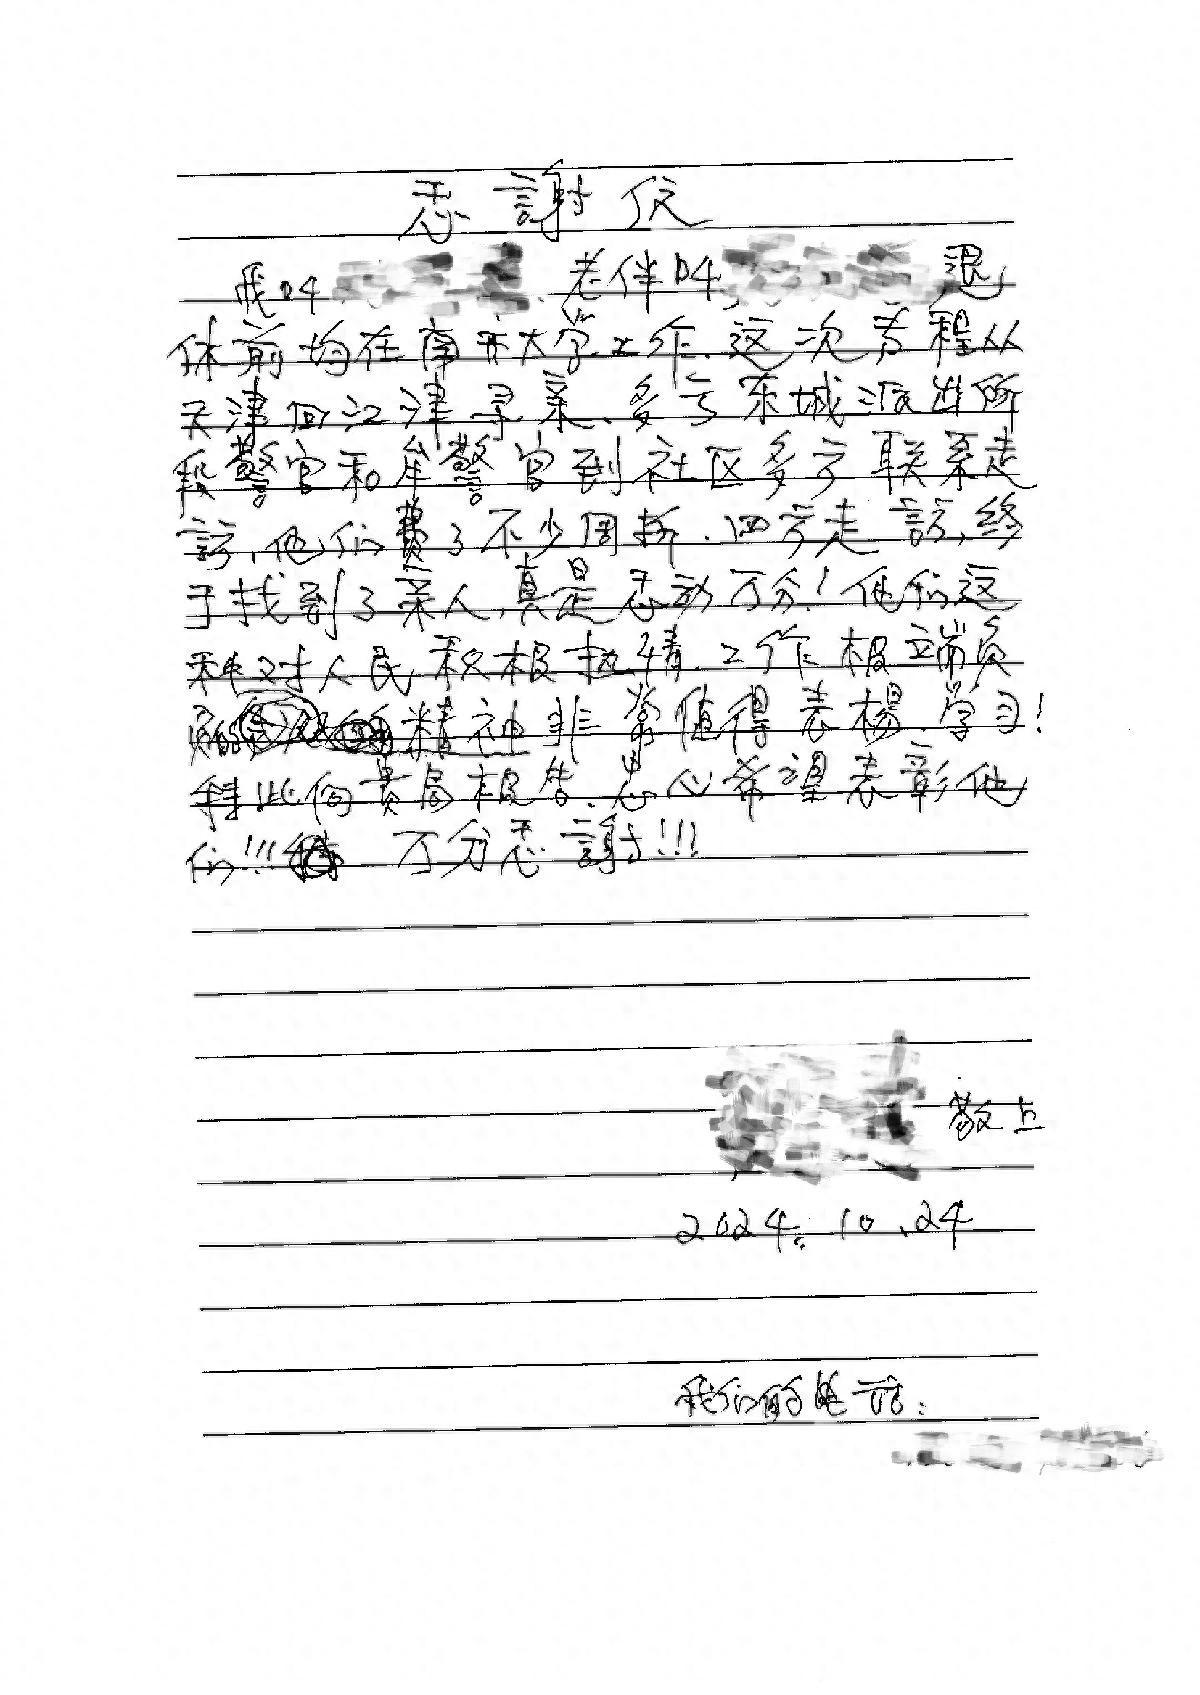 感謝信
我叫 老伴叫 退
休前均在南开大学工作、这次专程从
天津回江津寻亲、多亏东城派出所
段警官和牟警官到社区多方联系走
訪,他们費了不少周折.四方走訪,终
于找到了亲人,真是感动万分!他们这
种对人民积极热情.工作极端负
责的精神非常值得表揚.学习!
特此向贵局报告.忠心希望表彰他
们!!! 万分感謝!!!
敬上
2024.10.24
我们的电话: